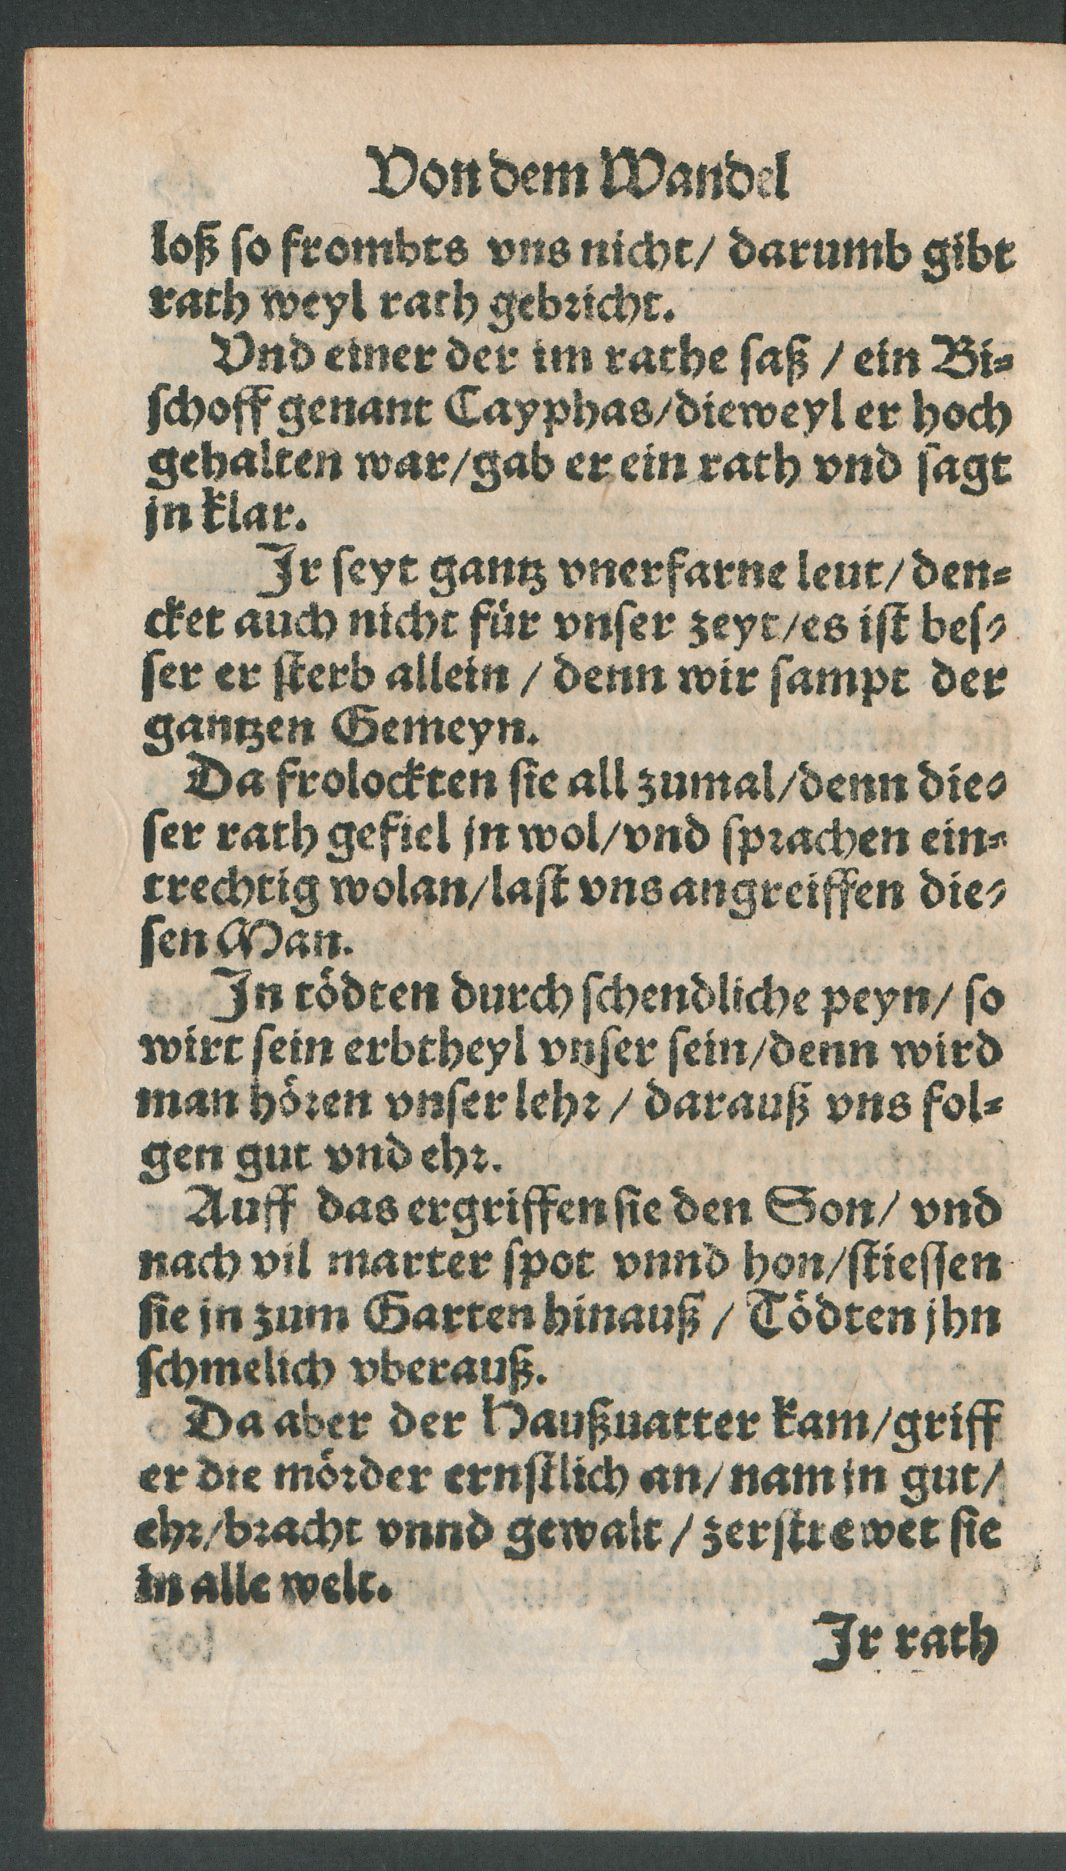 Von dem Wandel
loß so frombts vns nicht/ darumb gibt
rath weyl rath gebricht.
Vnd einer der im rathe saß / ein Bi-
schoff genant Cayphas/dieweyl er hoch
gehalten war/gab er ein rath vnd sagt
jn klar.
Jr seyt gantz vnerfarne leut/ den-
cket auch nicht für vnser zeyt/es ist bes-
ser er sterb allein / denn wir sampt der
gantzen Gemeyn.
Da frolockten sie all zumal/denn die-
ser rath gefiel jn wol/vnd sprachen ein-
trechtig wolan/last vns angreiffen die-
sen Man.
Jn tödten durch schendliche peyn/ so
wirt sein erbtheyl vnser sein/denn wird
man hören vnser lehr / darauß vns fol-
gen gut vnd ehr.
Auff das ergriffen sie den Son/ vnd
nach vil marter spot vnnd hon/stiessen
sie jn zum Garten hinauß / Tödten jhn
schmelich vberauß.
Da aber der Haußuatter kam/griff
er die mörder ernstlich an/nam jn gut/
ehr/bracht vnnd gewalt / zerstrewet sie
in alle welt.
Jr rath